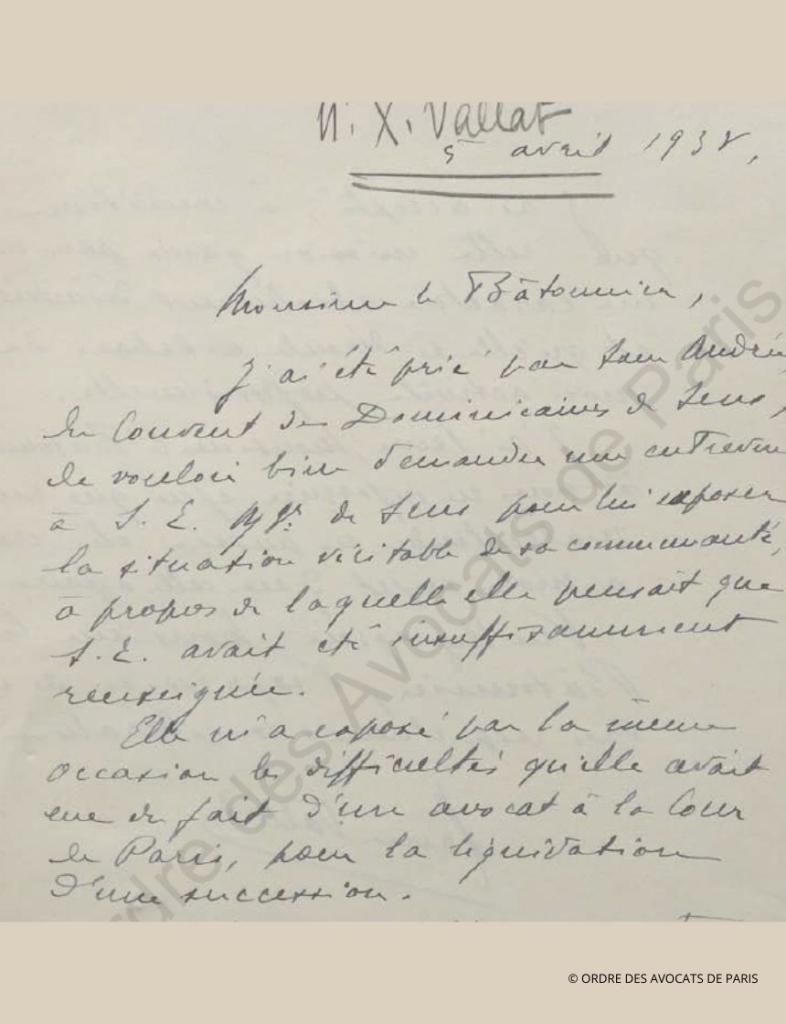 M. X. Vallat
5 avril 1938,
Monsieur le Bâtonnier,
J'ai été prié par Sœur Andrée,
du Couvent des Dominicaines de Sens,
de vouloir bien demander une entrevue
à S. E. Mgr. de Sens pour lui exposer
la situation véritable de sa communauté,
à propos de laquelle elle pensait que
S. E. avait été insuffisamment
renseignée.
Elle m'a exposé par la même
occasion les difficultés qu'elle avait
eue du fait d'un avocat à la Cour
de Paris, pour la liquidation
d'une succession.
Ordre des Avocats de Paris
© ORDRE DES AVOCATS DE PARIS